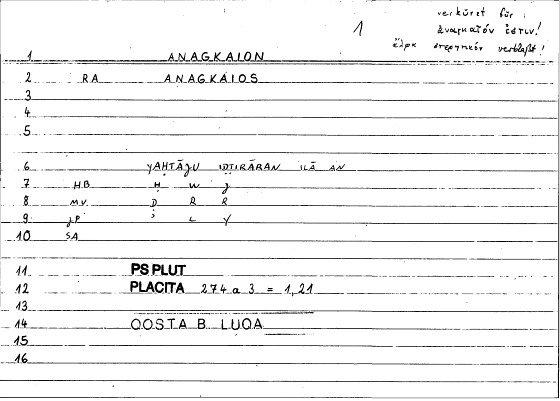 1 verkürzt für:
ἀναγκαῖόν ἐστιν!
verblaßt!
1 ANAGKAION
2 RA ANAGKAIOS
3
4
5
6 YAḤTĀǦU IḌṬIRĀRAN ILĀ AN
7 HB Ḥ W Ǧ
8 MV Ḍ R R
9 JP ʾ L Y
10 SA
11 PS PLUT
12 PLACITA 274 a 3 = 1,21
13
14 QOSTA B. LUQA
15
16